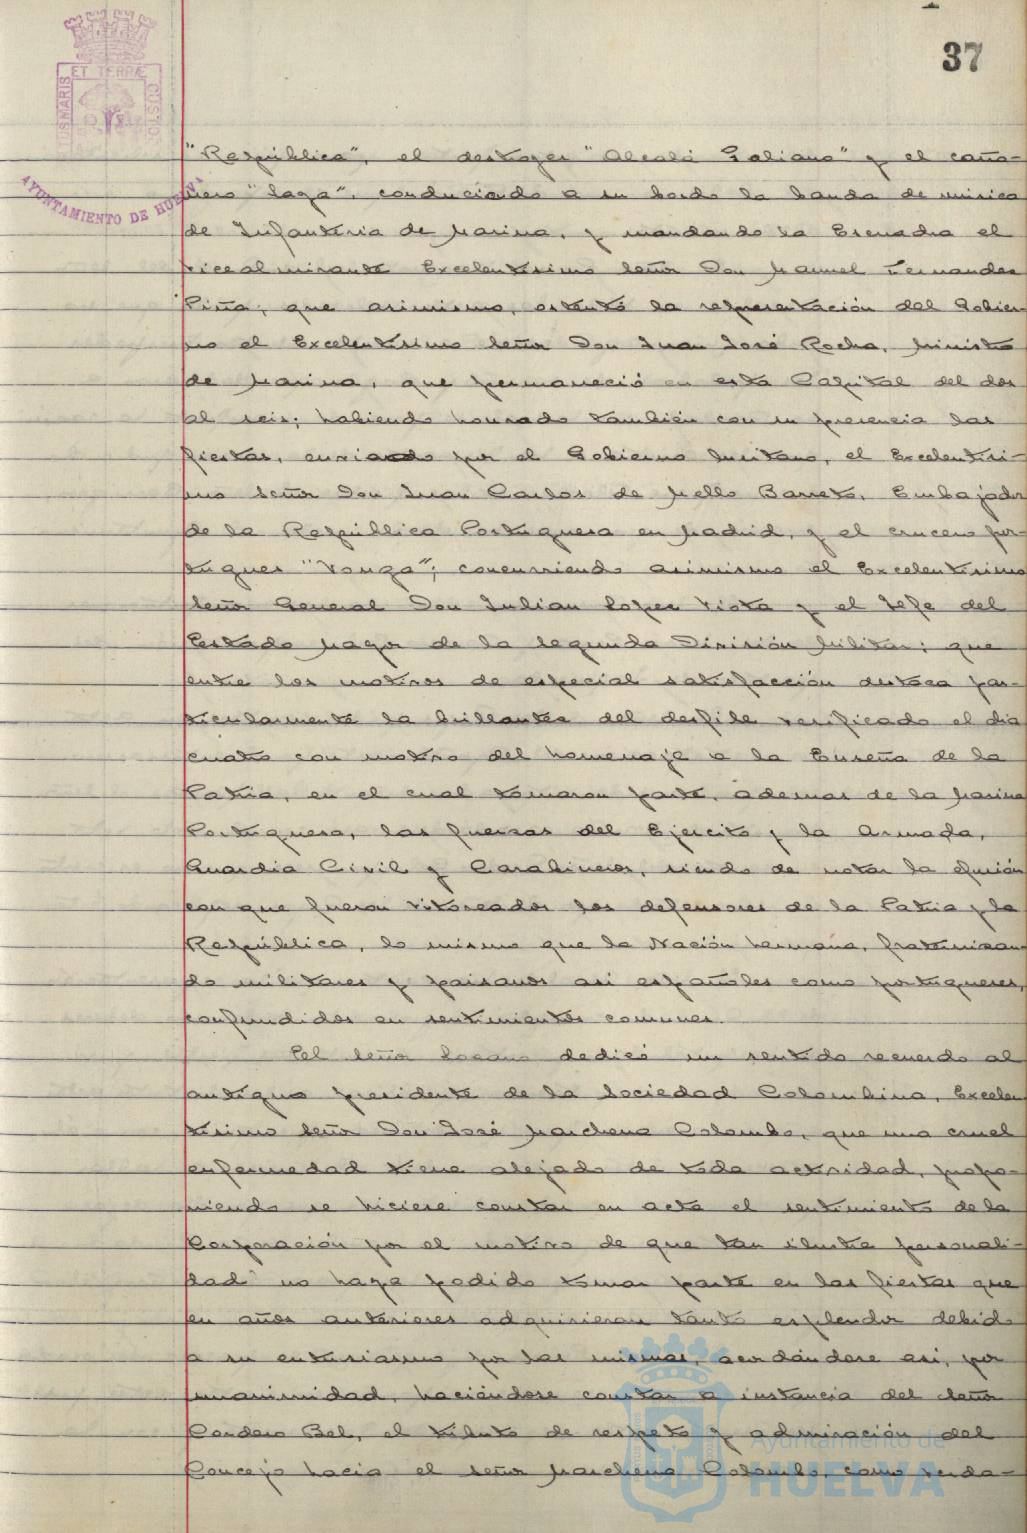 37
ET TERRÆ
AYUNTAMIENTO DE HUELVA
"República", el destroyer "Alcalá Galiano" y el caño-
nero "Laya", conduciendo a su bordo la banda de música
de Infantería de Marina, y mandando la Escuadra el
Vicealmirante Excelentísimo Señor Don Manuel Fernandez
Piña; que asimismo, ostentó la representación del Gobier-
no el Excelentísimo Señor Don Juan José Rocha, Ministro
de Marina, que permaneció en esta Capital del dos
al seis; habiendo honrado también con su presencia las
fiestas, enviado por el Gobierno lusitano, el Excelentísi-
mo Señor Don Juan Carlos de Mello Barreto, Embajador
de la República Portuguesa en Madrid, y el crucero por-
tugues "Vouga"; concurriendo asimismo el Excelentísimo
Señor General Don Julian Lopez Viota y el Jefe del
Estado Mayor de la Segunda División Militar; que
entre los motivos de especial satisfacción destaca par-
ticularmente la brillantez del desfile verificado el dia
cuatro con motivo del homenaje a la Enseña de la
Patria, en el cual tomaron parte, ademas de la Marina
Portuguesa, las fuerzas del Ejercito y la Armada,
Guardia Civil y Carabineros, siendo de notar la efusión
con que fueron vitoreados los defensores de la Patria y la
República, lo mismo que la Nación hermana, fraternizan-
do militares y paisanos asi españoles como portugueses,
confundidos en sentimientos comunes.
El Señor Lozano dedicó un sentido recuerdo al
antiguo presidente de la Sociedad Colombina, Excelen
tísimo Señor Don José Marchena Colombo, que una cruel
enfermedad tiene alejado de toda actividad, propo-
niendo se hiciese constar en acta el sentimiento de la
Corporación por el motivo de que tan ilustre personali-
dad no haya podido tomar parte en las fiestas que
en años anteriores adquirieron tanto esplendor debido
a su entusiasmo por las mismas, acordándose asi, por
unanimidad, haciéndose constar a instancia del Señor
Cordero Bel, el tributo de respeto y admiración del
Concejo hacia el señor Marchena Colombo, como verda-
Ayuntamiento de
HUELVA